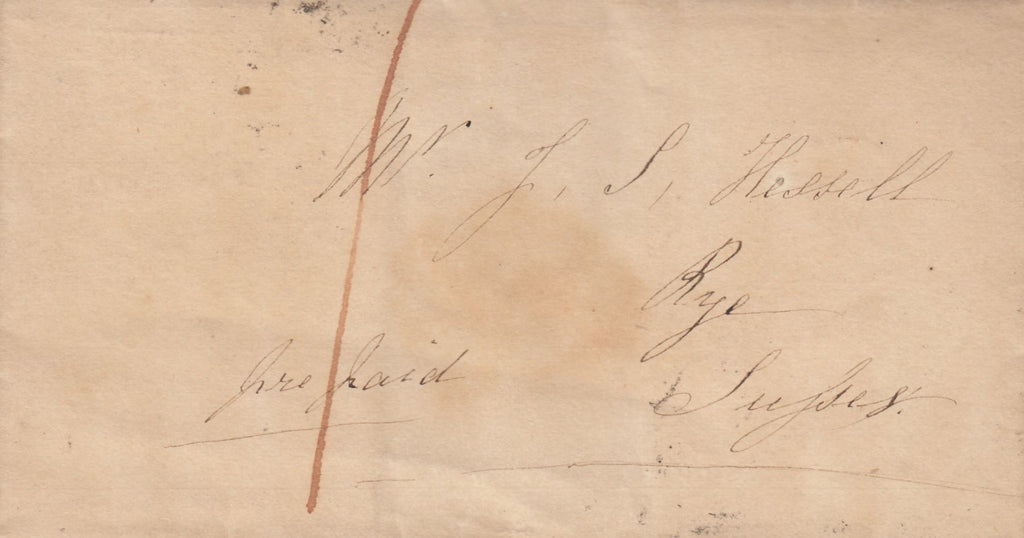 Mr. J. S. Hessell
Rye
pre paid
Sussex.